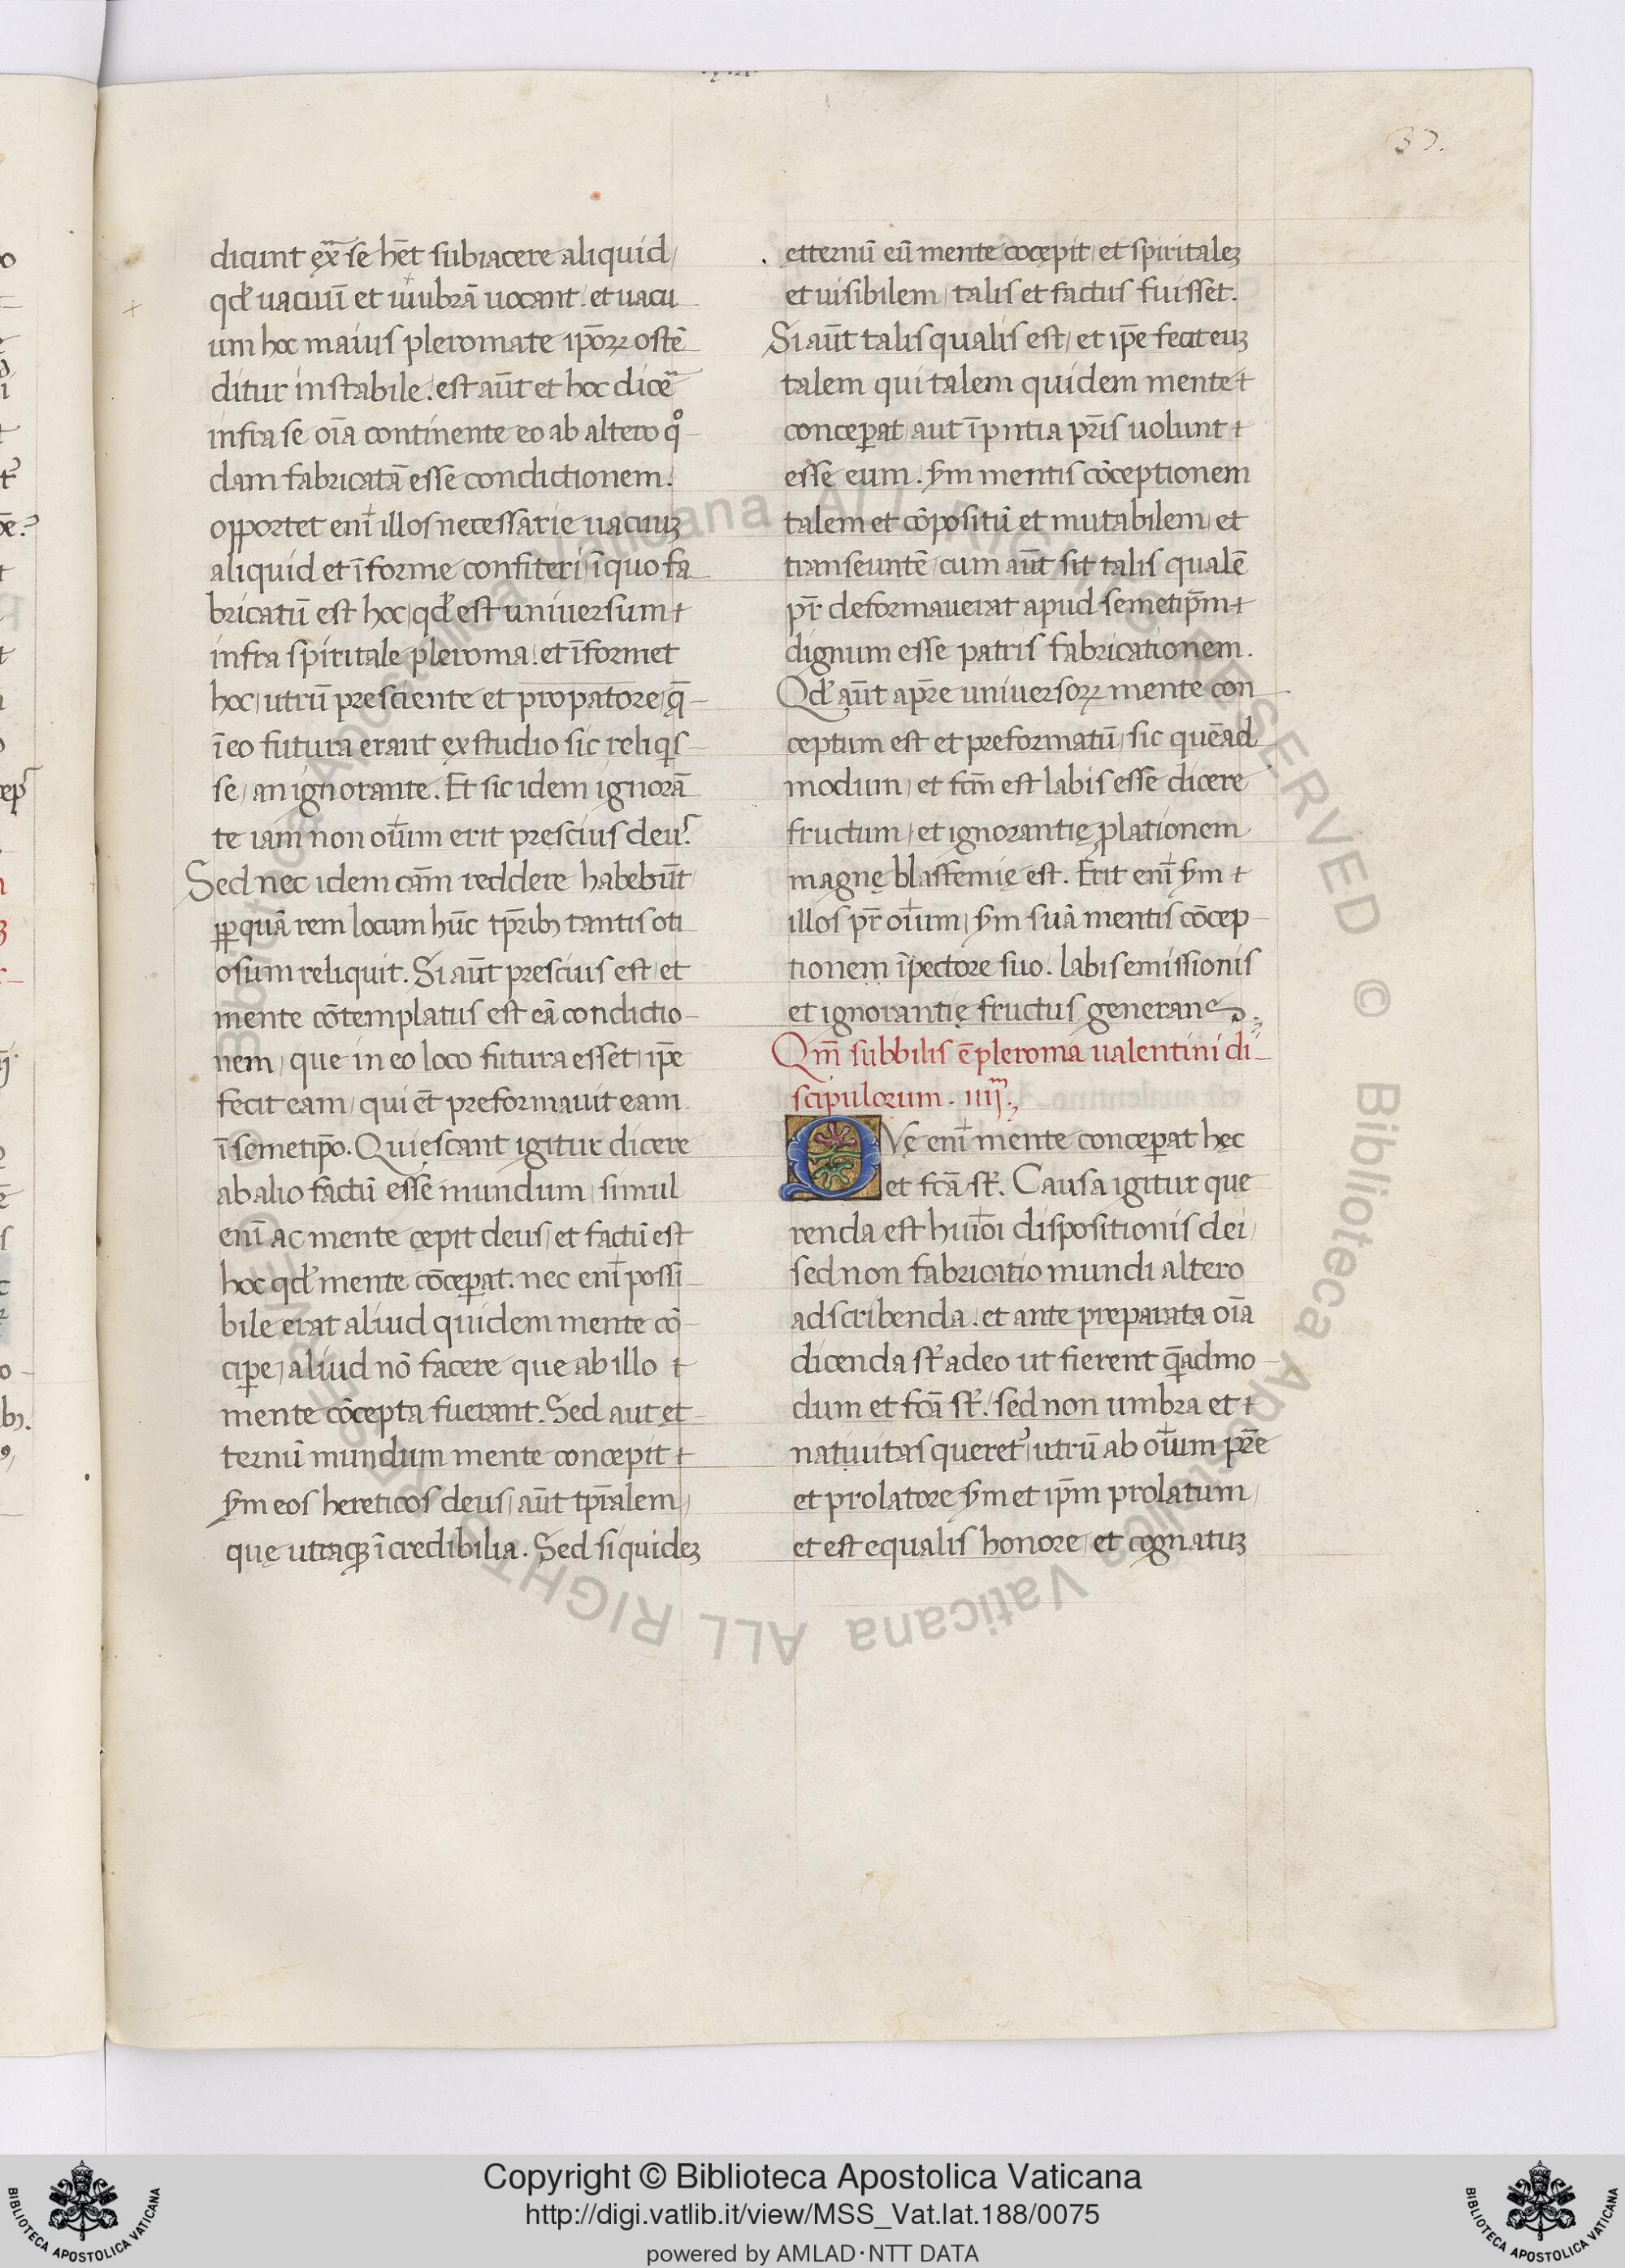 37.
dicunt ext̃ se hẽt subiacere aliquid/
qđ uacuũ et uṁbrã uocant. et uacu
um hoc maius pleromate ip̃oꝝ ostẽ
ditur instabile. est aũt et hoc dicẽ
infra se oĩa continente eo ab altero q°
dam fabricatã esse condictionem.
opportet enĩ illos necessarie uacuuꝫ
aliquid et ĩforme confiteri/ ĩ quo fa
bricatũ est hoc/ qđ est uniuersum
infra spiritale pleroma. et ĩformet
hoc/ utrũ presciente et propatore/ q̃
ĩ eo futura erant ex studio sic reliq̃s
se/ an ignorante. Et sic idem ignorã
te iam non oĩum erit prescius deus.
Sed nec idem cãm reddere habebũt
ꝓpquã rem locum hũc tp̃ribꝫ tantis oti
osum reliquit. Si aũt prescius est/ et
mente cõtemplatus est eã condictio
nem/ que in eo loco futura esset/ ip̃e
fecit eam/ qui et̃ preformauit eam
ĩ semetip̃o. Quiescant igitur dicere
ab alio factũ esse mundum/ simul
enĩ ac mente cepit deus/ et factũ est
hoc qđ mente cõceꝑat. nec enĩ possi
bile erat aliud quidem mente cõ
ciꝑe/ aliud nõ facere que ab illo
mente cõcepta fuerant. Sed aut et
ternũ mundum mente concepit
ẏm eos hereticos deus/ aũt tp̃ralem/
quę utraqꝫ ĩcredibilia. Sed si quideꝫ
etternũ eũ mente cõcepit/ et spiritaleꝫ
et uisibilem/ talis et factus fuisset.
Si aũt talis qualis est/ et ip̃e fecit euꝫ
talem qui talem quidem mente
conceꝑat/ aut ĩ p̃ntia pr̃is uolunt
esse eum. ẏm mentis cõceptionem
talem et cõpositũ et mutabilem/ et
transeuntẽ/ cum aũt sit talis qualẽ
pr̃ deformauerat apud semetip̃m
dignum esse patris fabricationem.
Qđ aũt a pr̃e uniuersoꝝ mente con
ceptum est et preformatũ/ sic quẽad
modum/ et fcm̃ est labis esse dicere
fructum/ et ignorantię ꝓlationem
magnę blasfemię est. Erit enĩ ẏm
illos pr̃ oĩum/ ẏm suã mentis cõcep
tionem ĩ pectore suo. labis emissionis
et ignorantię fructus generans.
Qm̃ subbilis ẽ pleroma ualentini di
scipulorum. iiij.
QVę enĩ mente conceꝑat hęc
et fcã st̃. Causa igitur que
renda est huĩõi dispositionis dei/
sed non fabricatio mundi altero
adscribenda. et ante preparata oĩa
dicenda st̃ adeo ut fierent q̃admo
dum et fcã st̃./ sed non umbra et
natiuitas queret᷑/ utrũ ab oĩum pr̃e
et prolatore ẏm et ip̃m prolatum/
et est equalis honore/ et cognatuꝫ
Copyright © Biblioteca Apostolica Vaticana
http://digi.vatlib.it/view/MSS_Vat.lat.188/0075
powered by AMLAD·NTT DATA
BIBLIOTECA APOSTOLICA VATICANA
BIBLIOTECA APOSTOLICA VATICANA